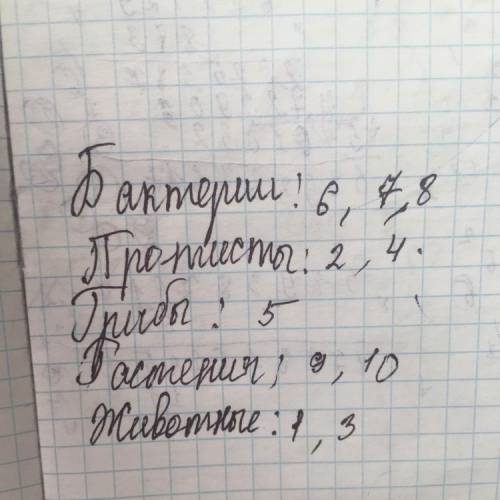 Бактерии: 6, 7, 8
Протисты: 2, 4.
Грибы: 5
Растения: 9, 10
Животные: 1, 3